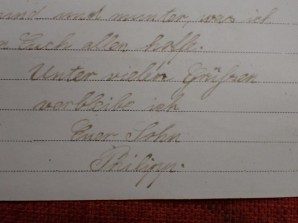 und munter was ich
Euch allen hoffe.
Unter vielen Grüßen
verbleibe ich
Euer Sohn
Philipp.